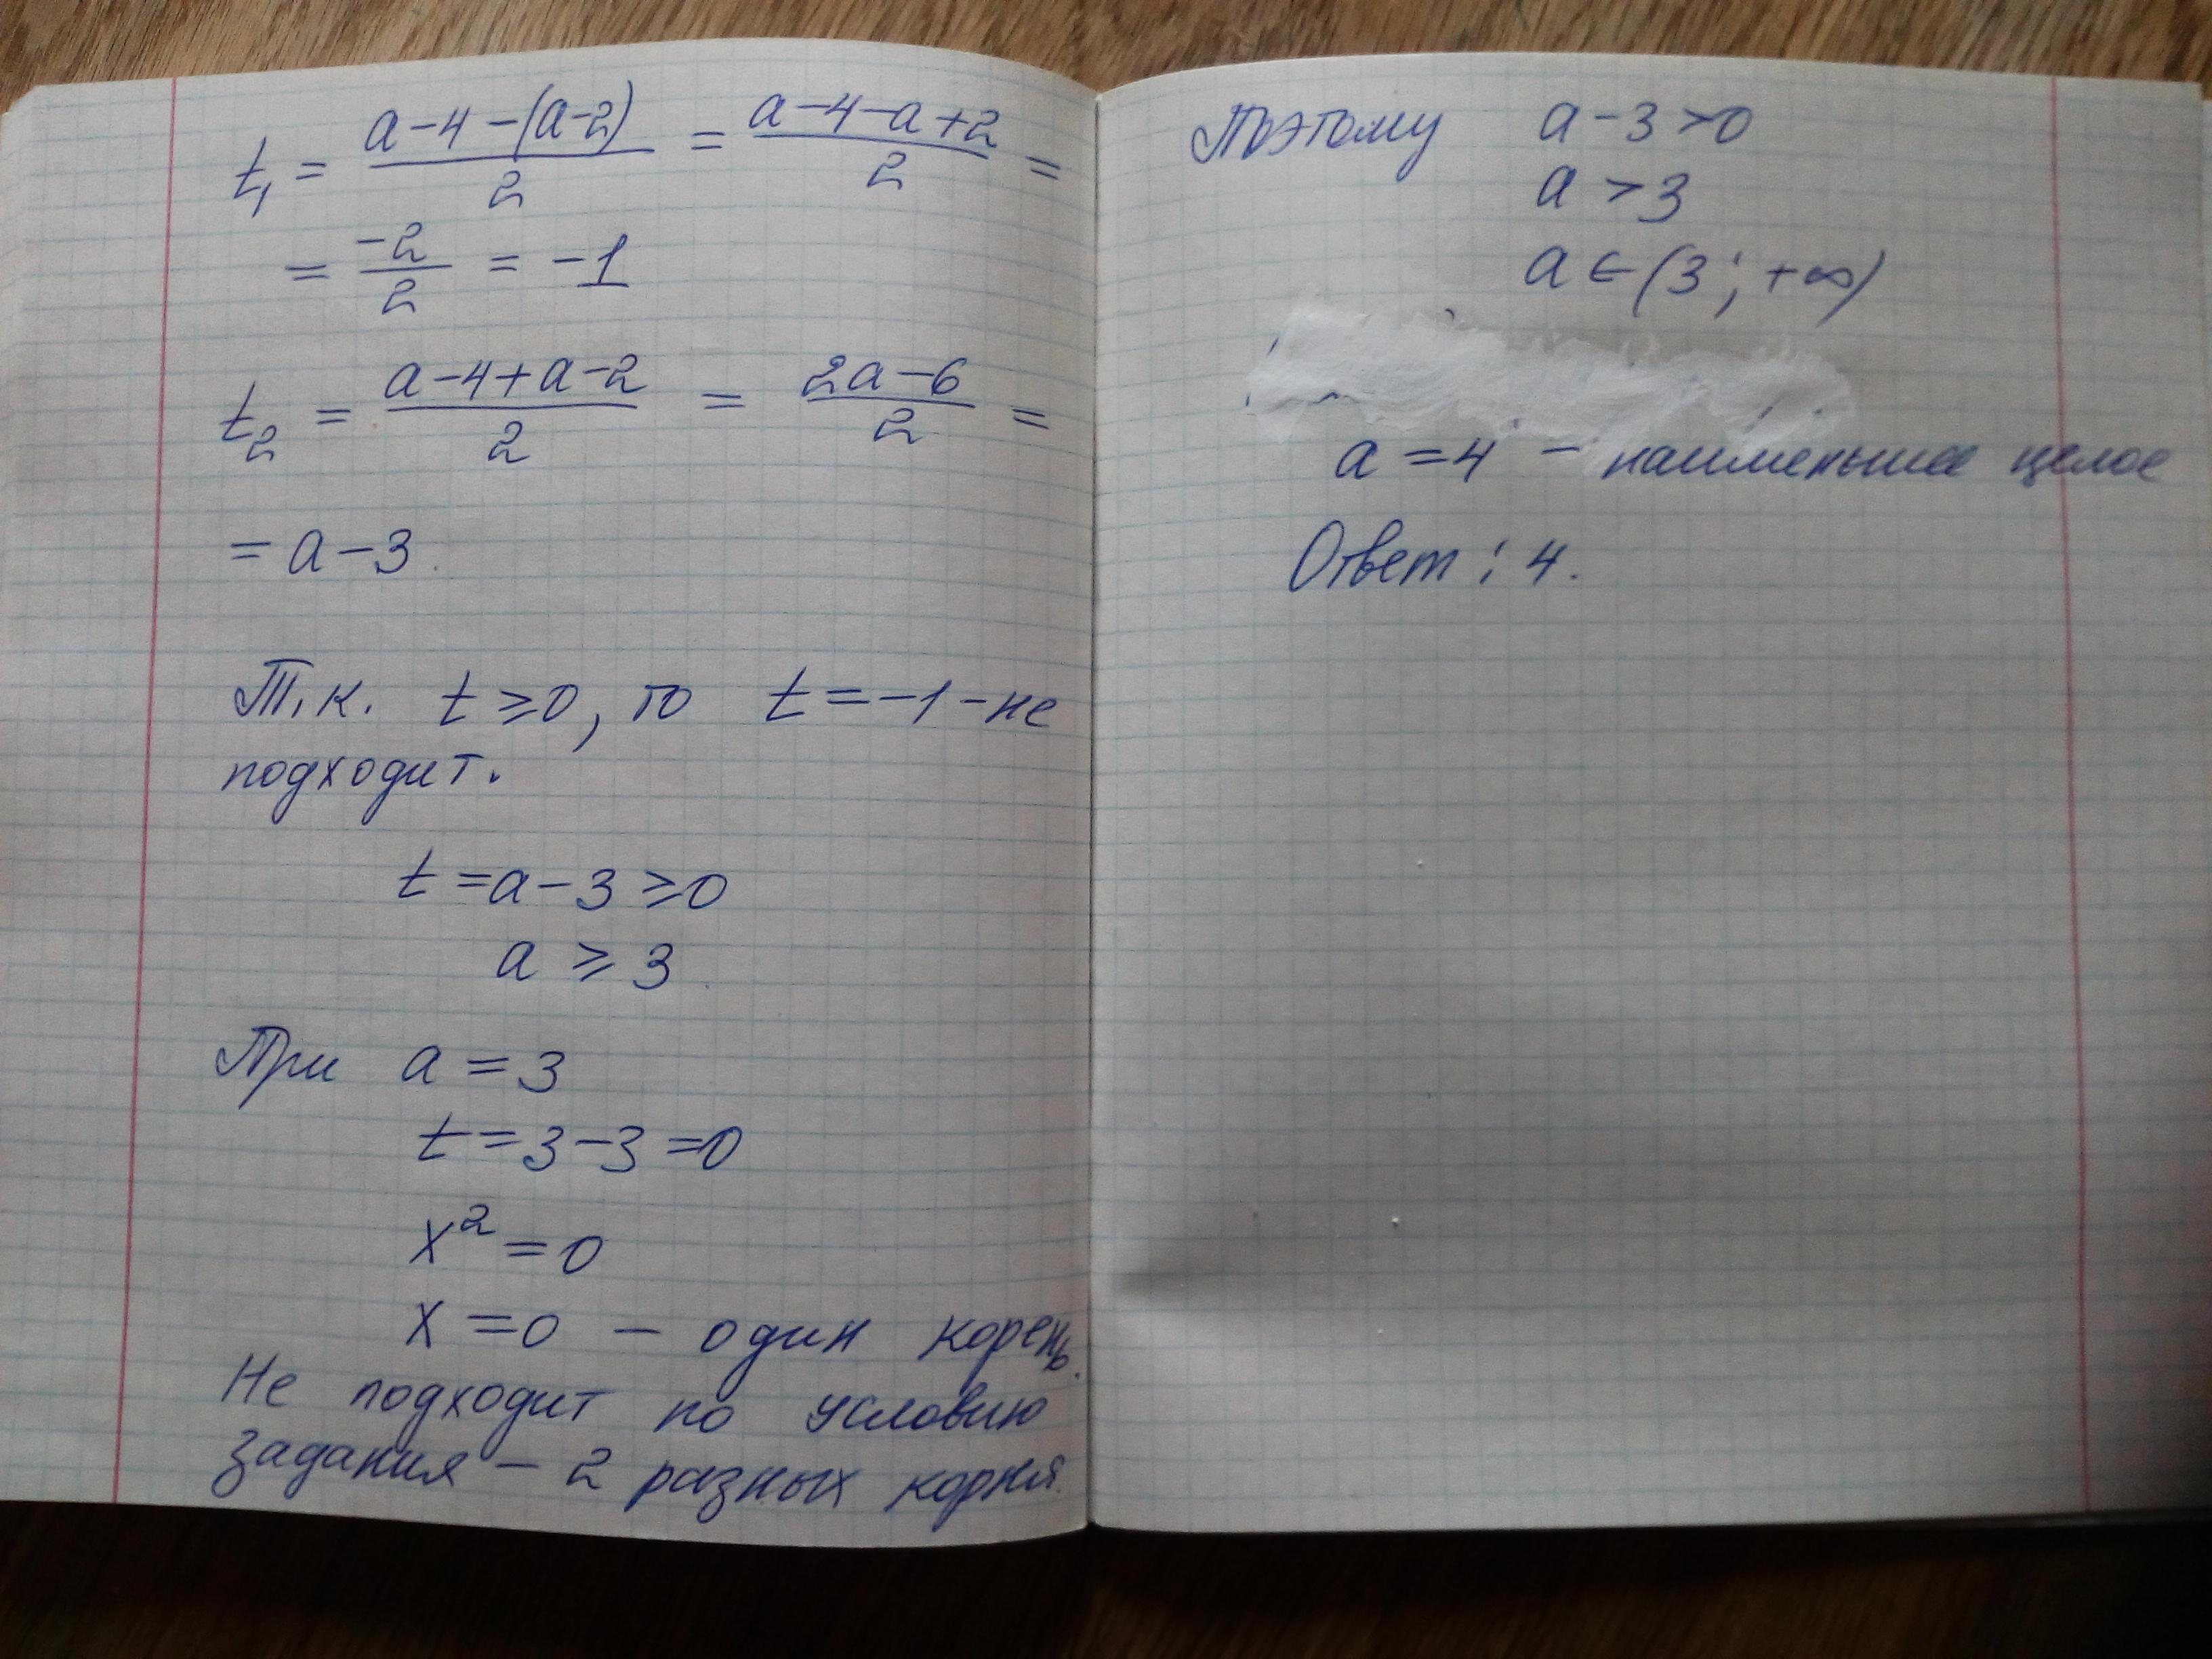 t₁ = (a-4-(a-2))/2 = (a-4-a+2)/2 =
= -2/2 = -1
t₂ = (a-4+a-2)/2 = (2a-6)/2 =
= a-3.
Т.к. t ≥ 0, то t = -1 - не
подходит.
t = a-3 ≥ 0
a ≥ 3
При a = 3
t = 3-3 = 0
x² = 0
x = 0 - один корень.
Не подходит по условию
задания - 2 разных корня.
Поэтому a-3 > 0
a > 3
a ∈ (3; +∞)
a = 4 - наименьшее целое
Ответ: 4.